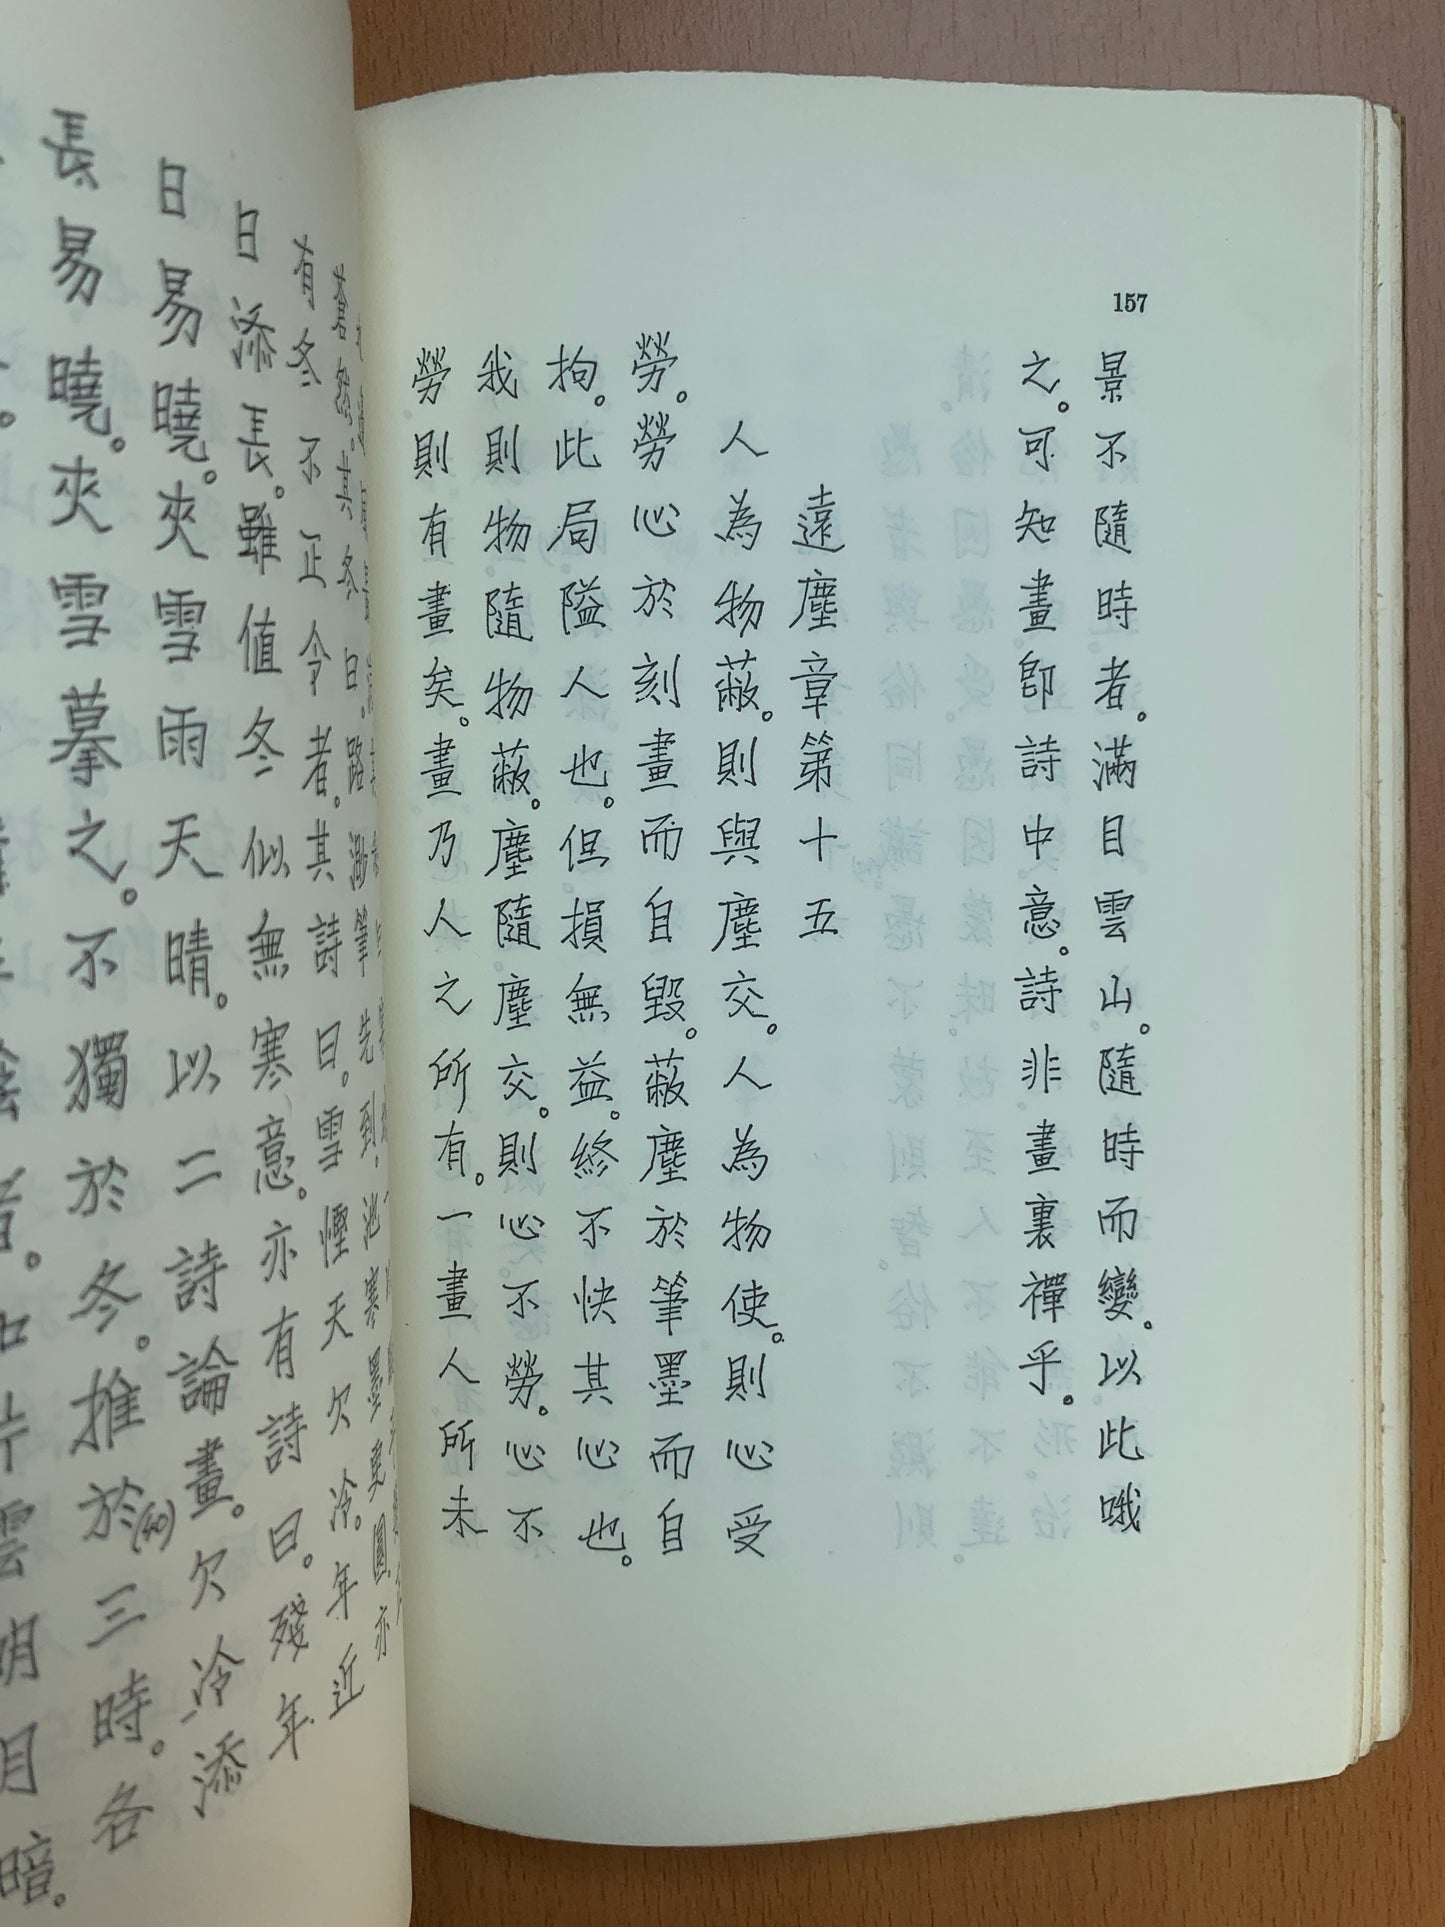 蒼然。其冬日。路渺筆先到。池寒墨更圓。亦
有冬不正令者。其詩曰。雪慳天欠冷。年近
日添長。雖值冬似無寒意。亦有詩曰。殘年
日易曉。夾雪雨天晴。以二詩論畫。欠冷添
長易曉。夾雪摹之。不獨於冬。推於(40)三時。各
片雲明月暗。
157
景不隨時者。滿目雲山。隨時而變。以此哦
之。可知畫卽詩中意。詩非畫裏禪乎。
遠塵章第十五
人為物蔽。則與塵交。人為物使。則心受
勞。勞心於刻畫而自毀。蔽塵於筆墨而自
拘。此局隘人也。但損無益。終不快其心也。
我則物隨物蔽。塵隨塵交。則心不勞。心不
勞則有畫矣。畫乃人之所有。一畫人所未